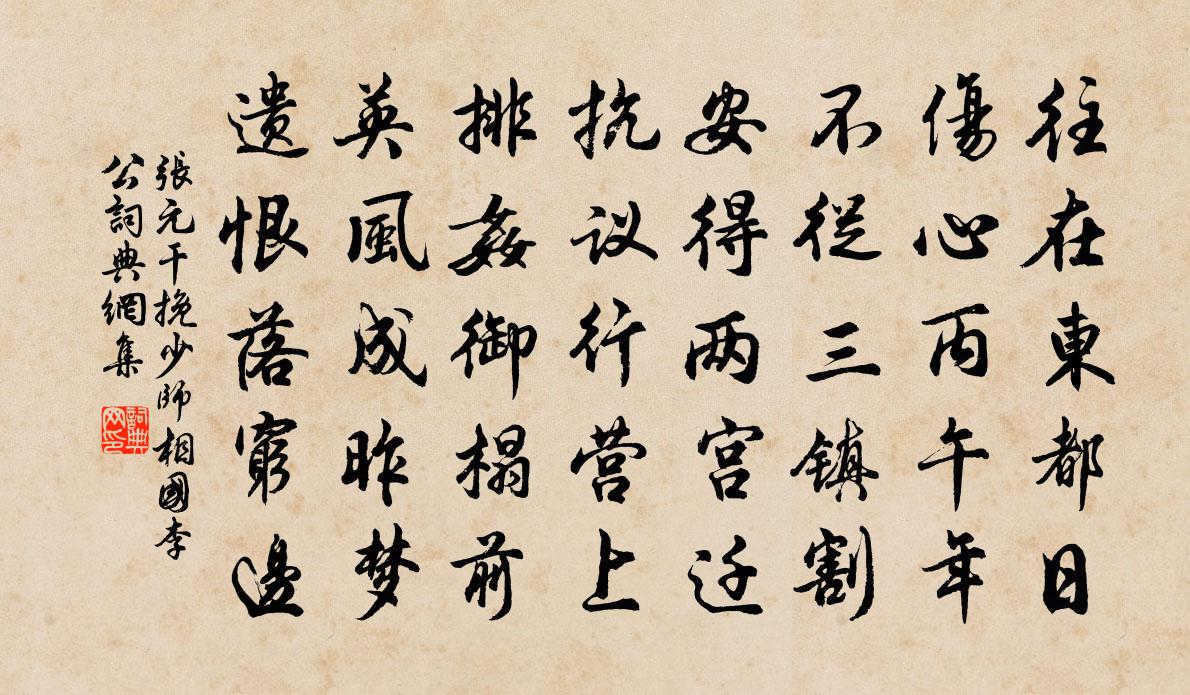 往在東都日
傷心丙午年
不從三镇割
安得两宫迁
抗议行营上
排姦御榻前
英風成昨梦
遗恨落窮邊
張元干挽少師相國李
公詞典網集
詞典网印